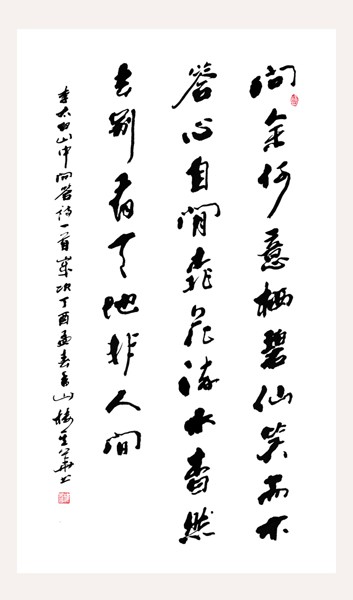 問余何意栖碧仙笑而不
答心自閒桃花流水杳然
去別有天地非人間
李太白山中问答诗一首歲次丁酉孟春山樓華书